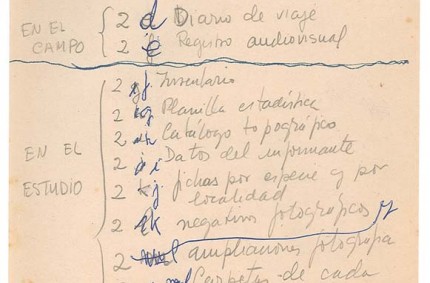 EN EL CAMPO
2 d Diario de viaje
2 e Registro audiovisual
EN EL ESTUDIO
2 f. Inventario
2 g Planilla estadística
2 h Catálogo topográfico
2 i Datos del informante
2 j. fichas por especie y por
localidad
2 k negativos fotográficos y
2 l ampliaciones fotografia
Carpetas de cada